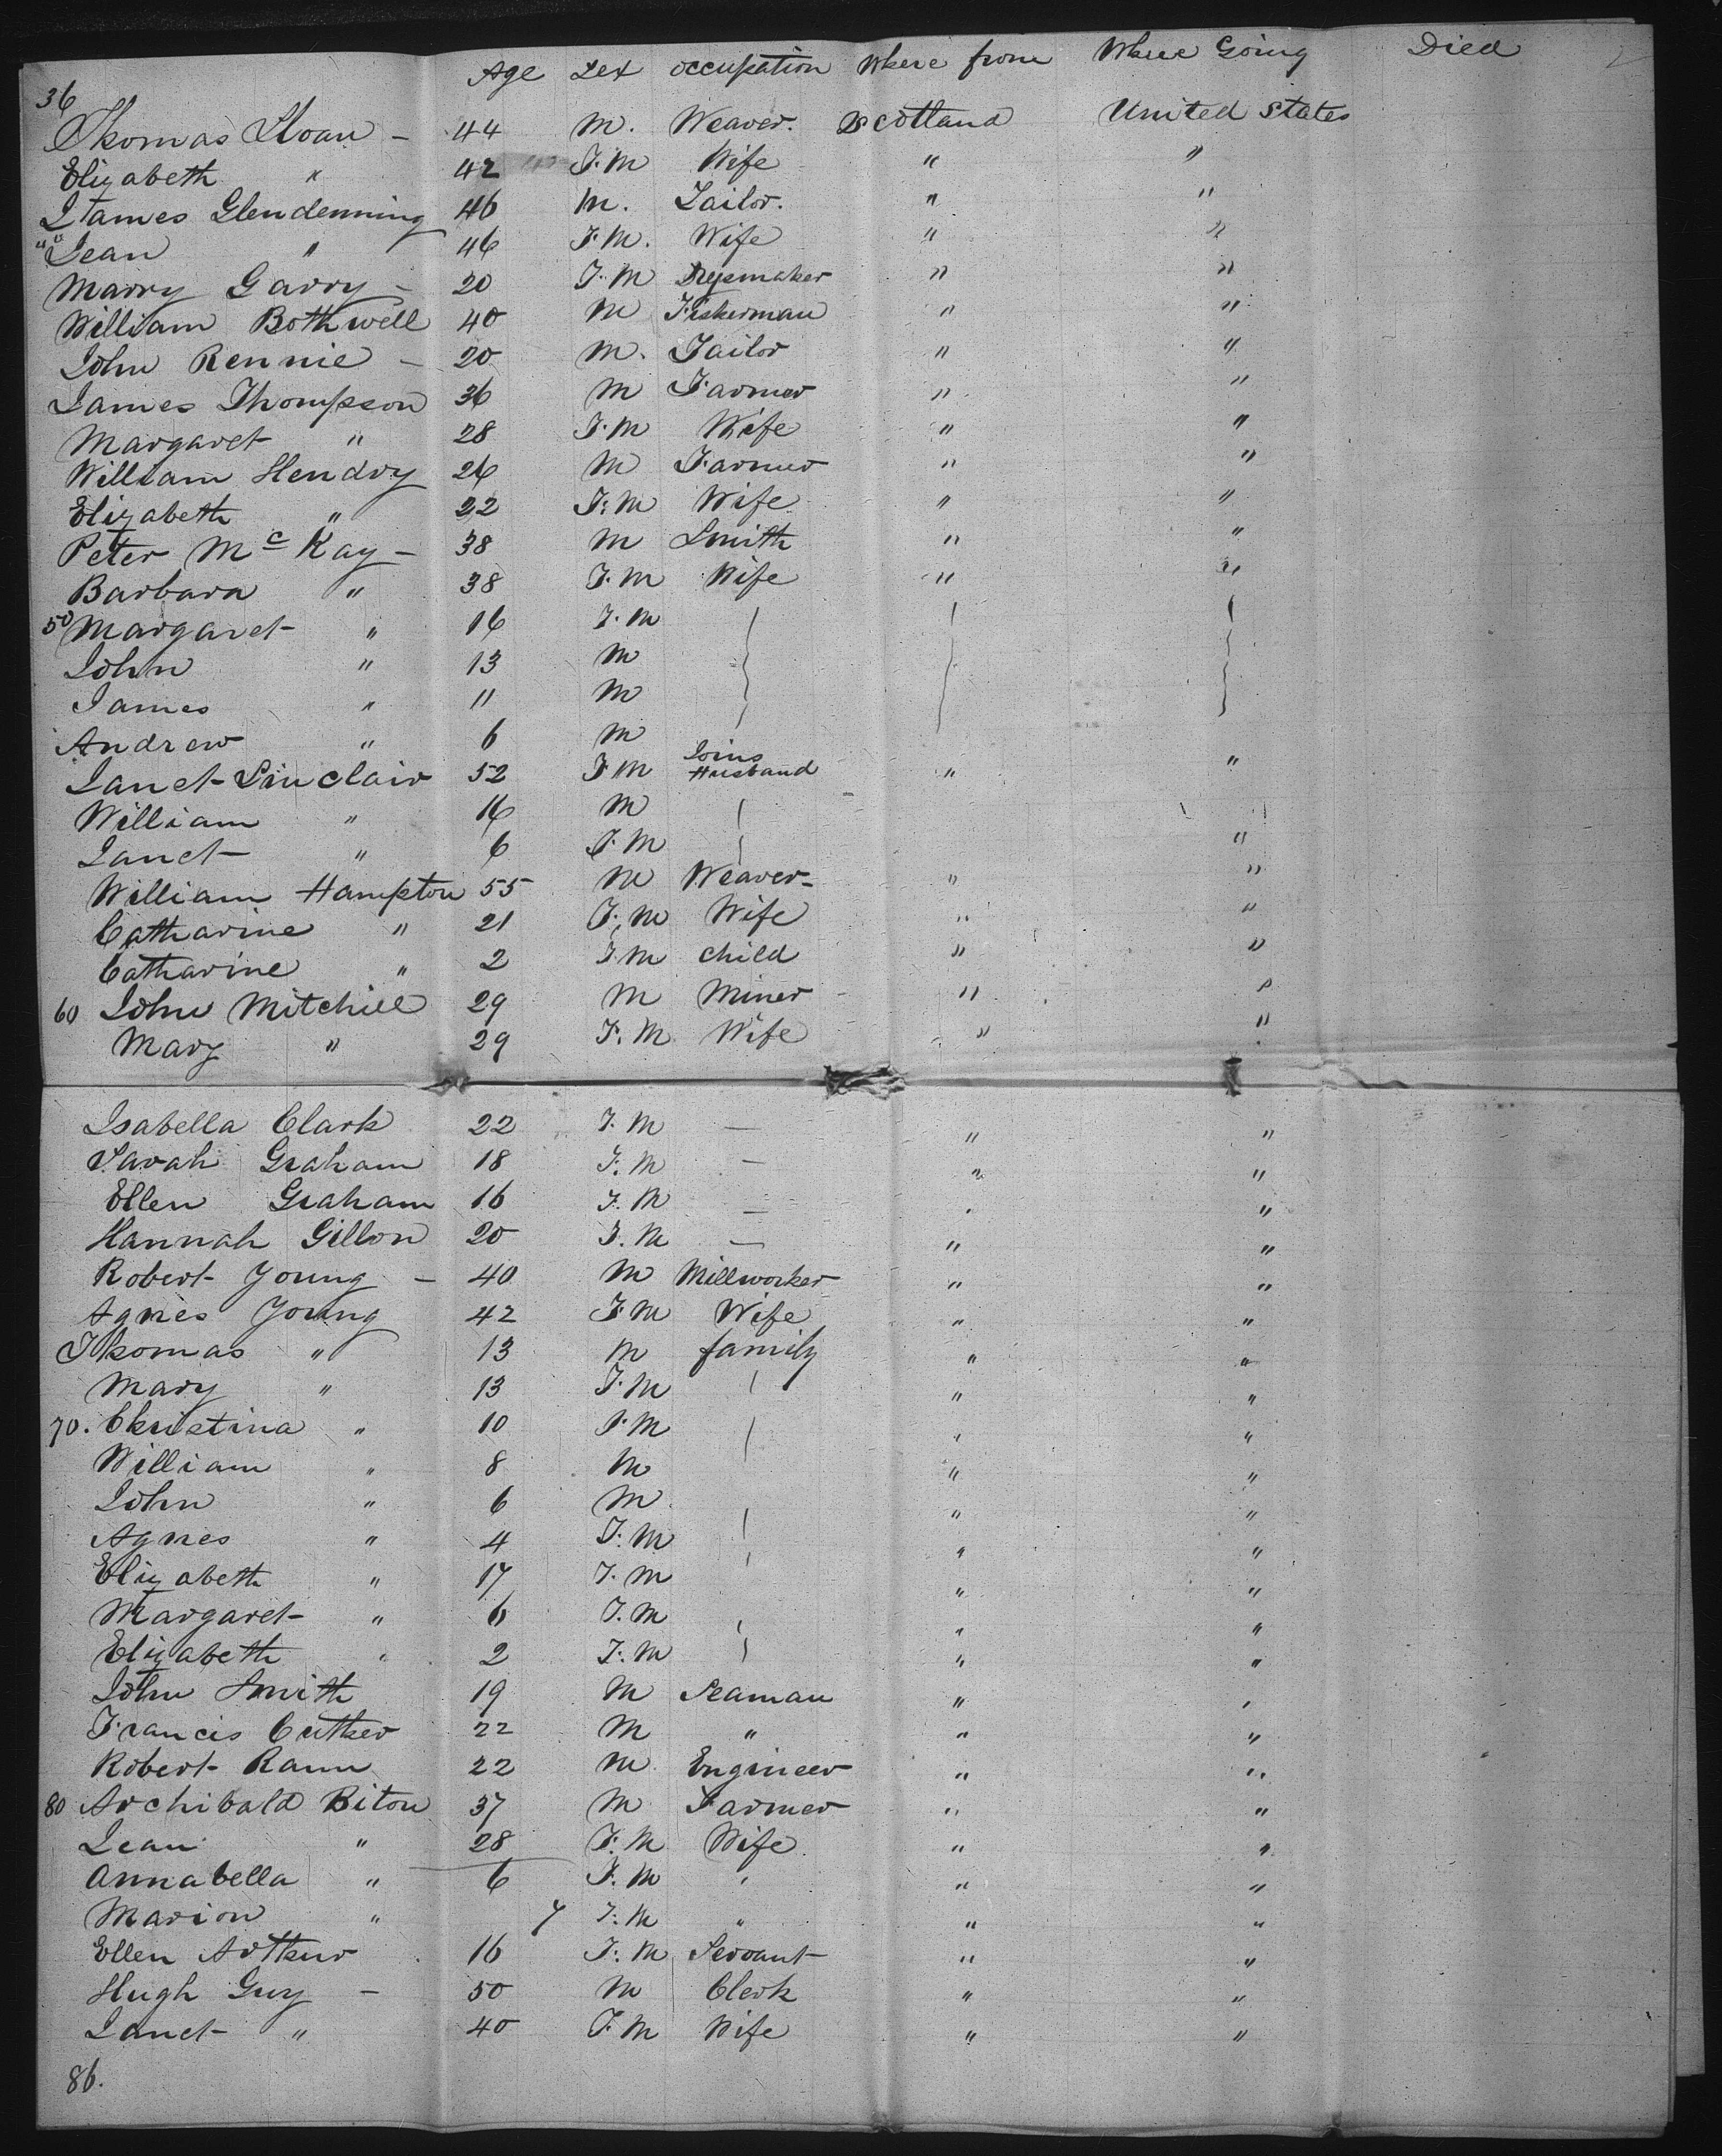 Age Sex occupation Where from Where Going Died
36
Thomas Sloan - 44 M. Weaver. Scotland United States
Elizabeth " 42 F.M Wife " "
James Glendenning 46 M. Tailor. " "
Jean " 46 F.M. Wife " "
Marry Garry - 20 F.M Dressmaker " "
William Bothwell 40 M Fisherman " "
John Rennie - 20 M. Tailor " "
James Thompson 36 M Farmer " "
Margaret " 28 F.M Wife " "
William Hendry 26 M Farmer " "
Elizabeth " 22 F.M Wife " "
Peter Mc Kay - 38 M Smith " "
Barbara " 38 F.M Wife " "
50 Margaret " 16 F.M
John " 13 M
James " 11 M
Andrew " 6 M
Janet Sinclair 52 F.M Joins Husband " "
William " 16 M
Janet " 6 F.M "
William Hampton 55 M Weaver - " "
Catharine " 21 F.M Wife " "
Catharine " 2 F.M child " "
60 John Mitchell 29 M Miner " "
Mary " 29 F.M Wife " "
Isabella Clark 22 F.M — " "
Sarah Graham 18 F.M — " "
Ellen Graham 16 F.M — " "
Hannah Gillon 20 F.M — " "
Robert Young - 40 M Millworker " "
Agnes Young 42 F.M Wife " "
Thomas " 13 M family " "
Mary " 13 F.M " "
70. Christina " 10 F.M " "
William " 8 M " "
John " 6 M " "
Agnes " 4 F.M " "
Elizabeth " 17 F.M " "
Margaret " 6 F.M " "
Elizabeth " 2 F.M " "
John Smith 19 M Seaman " "
Francis Cuther 22 M " " "
Robert Rann 22 M Engineer " "
80 Archibald Biton 37 M Farmer " "
Jean " 28 F.M Wife " "
Annabella " 6 F.M " " "
Marion " 4 F.M " " "
Ellen Arthur 16 F.M Servant " "
Hugh Guy - 50 M Clerk " "
Janet " 40 F.M Wife " "
86.